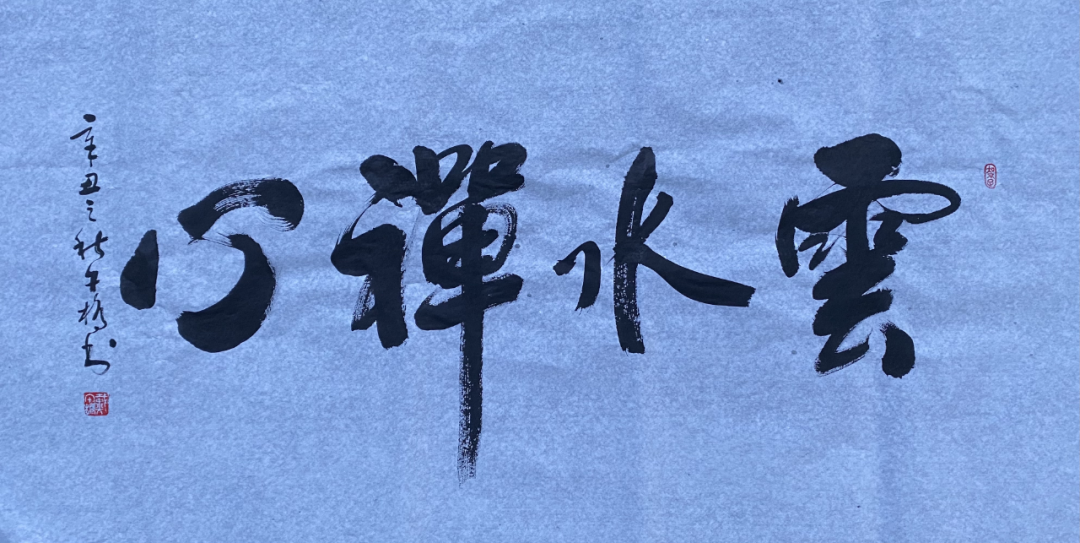 雲水禪心
辛丑之秋午橋书